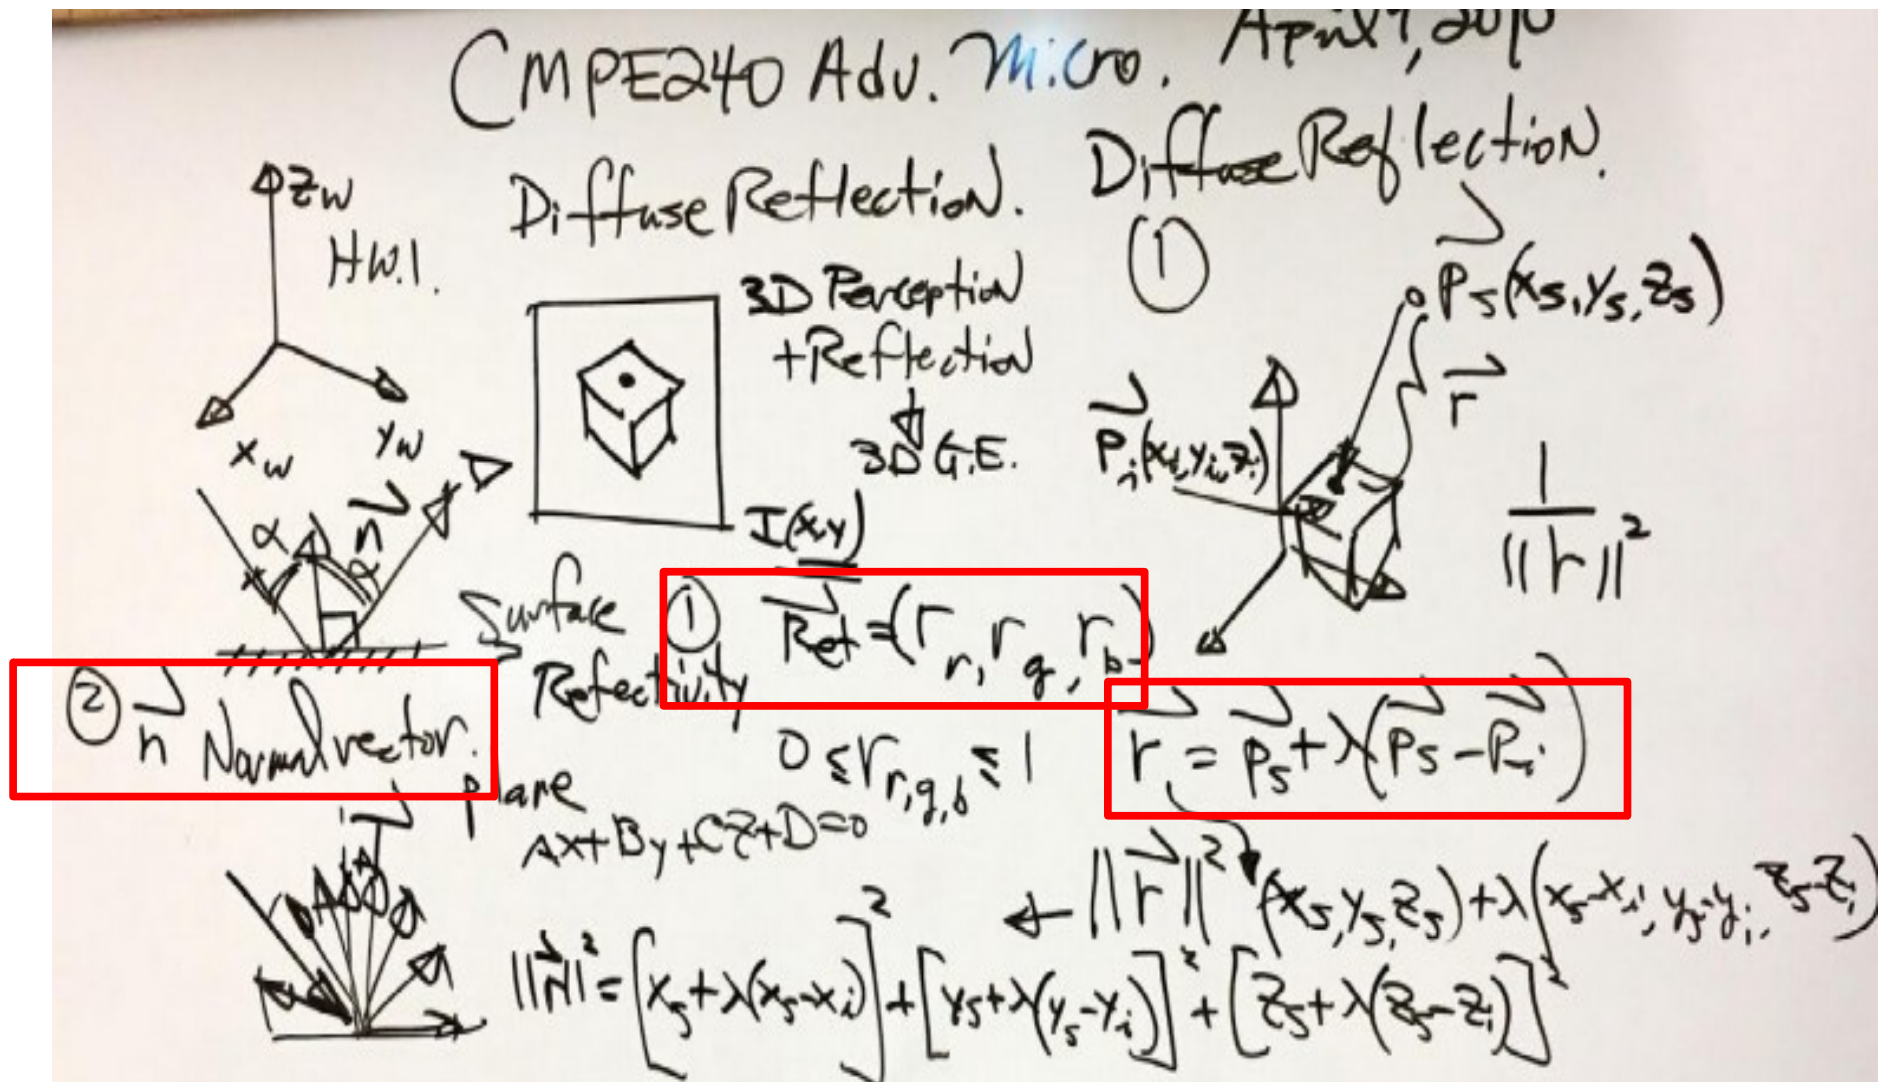 CMPE240 Adv. Micro.
Diffuse Reflection.
Zw
HW.1.
Xw
Yw
3D Perception
+Reflection
3D G.E.
I(x,y)
α
n
Surface
Refectivity
① Ref = (r_r, r_g, r_b)
0 ≤ r_r,g,b ≤ 1
② n Normal vector.
Plane
Ax+By+Cz+D=0
Diffuse Reflection.
①
Ps(xs, ys, zs)
r
Pi(xi, yi, zi)
1
||r||²
r = Ps + λ(Ps - Pi)
||r||² (xs, ys, zs) + λ(xs-xi, ys-yi, zs-zi)
||r||² = [xs + λ(xs-xi)]² + [ys + λ(ys-yi)]² + [zs + λ(zs-zi)]²